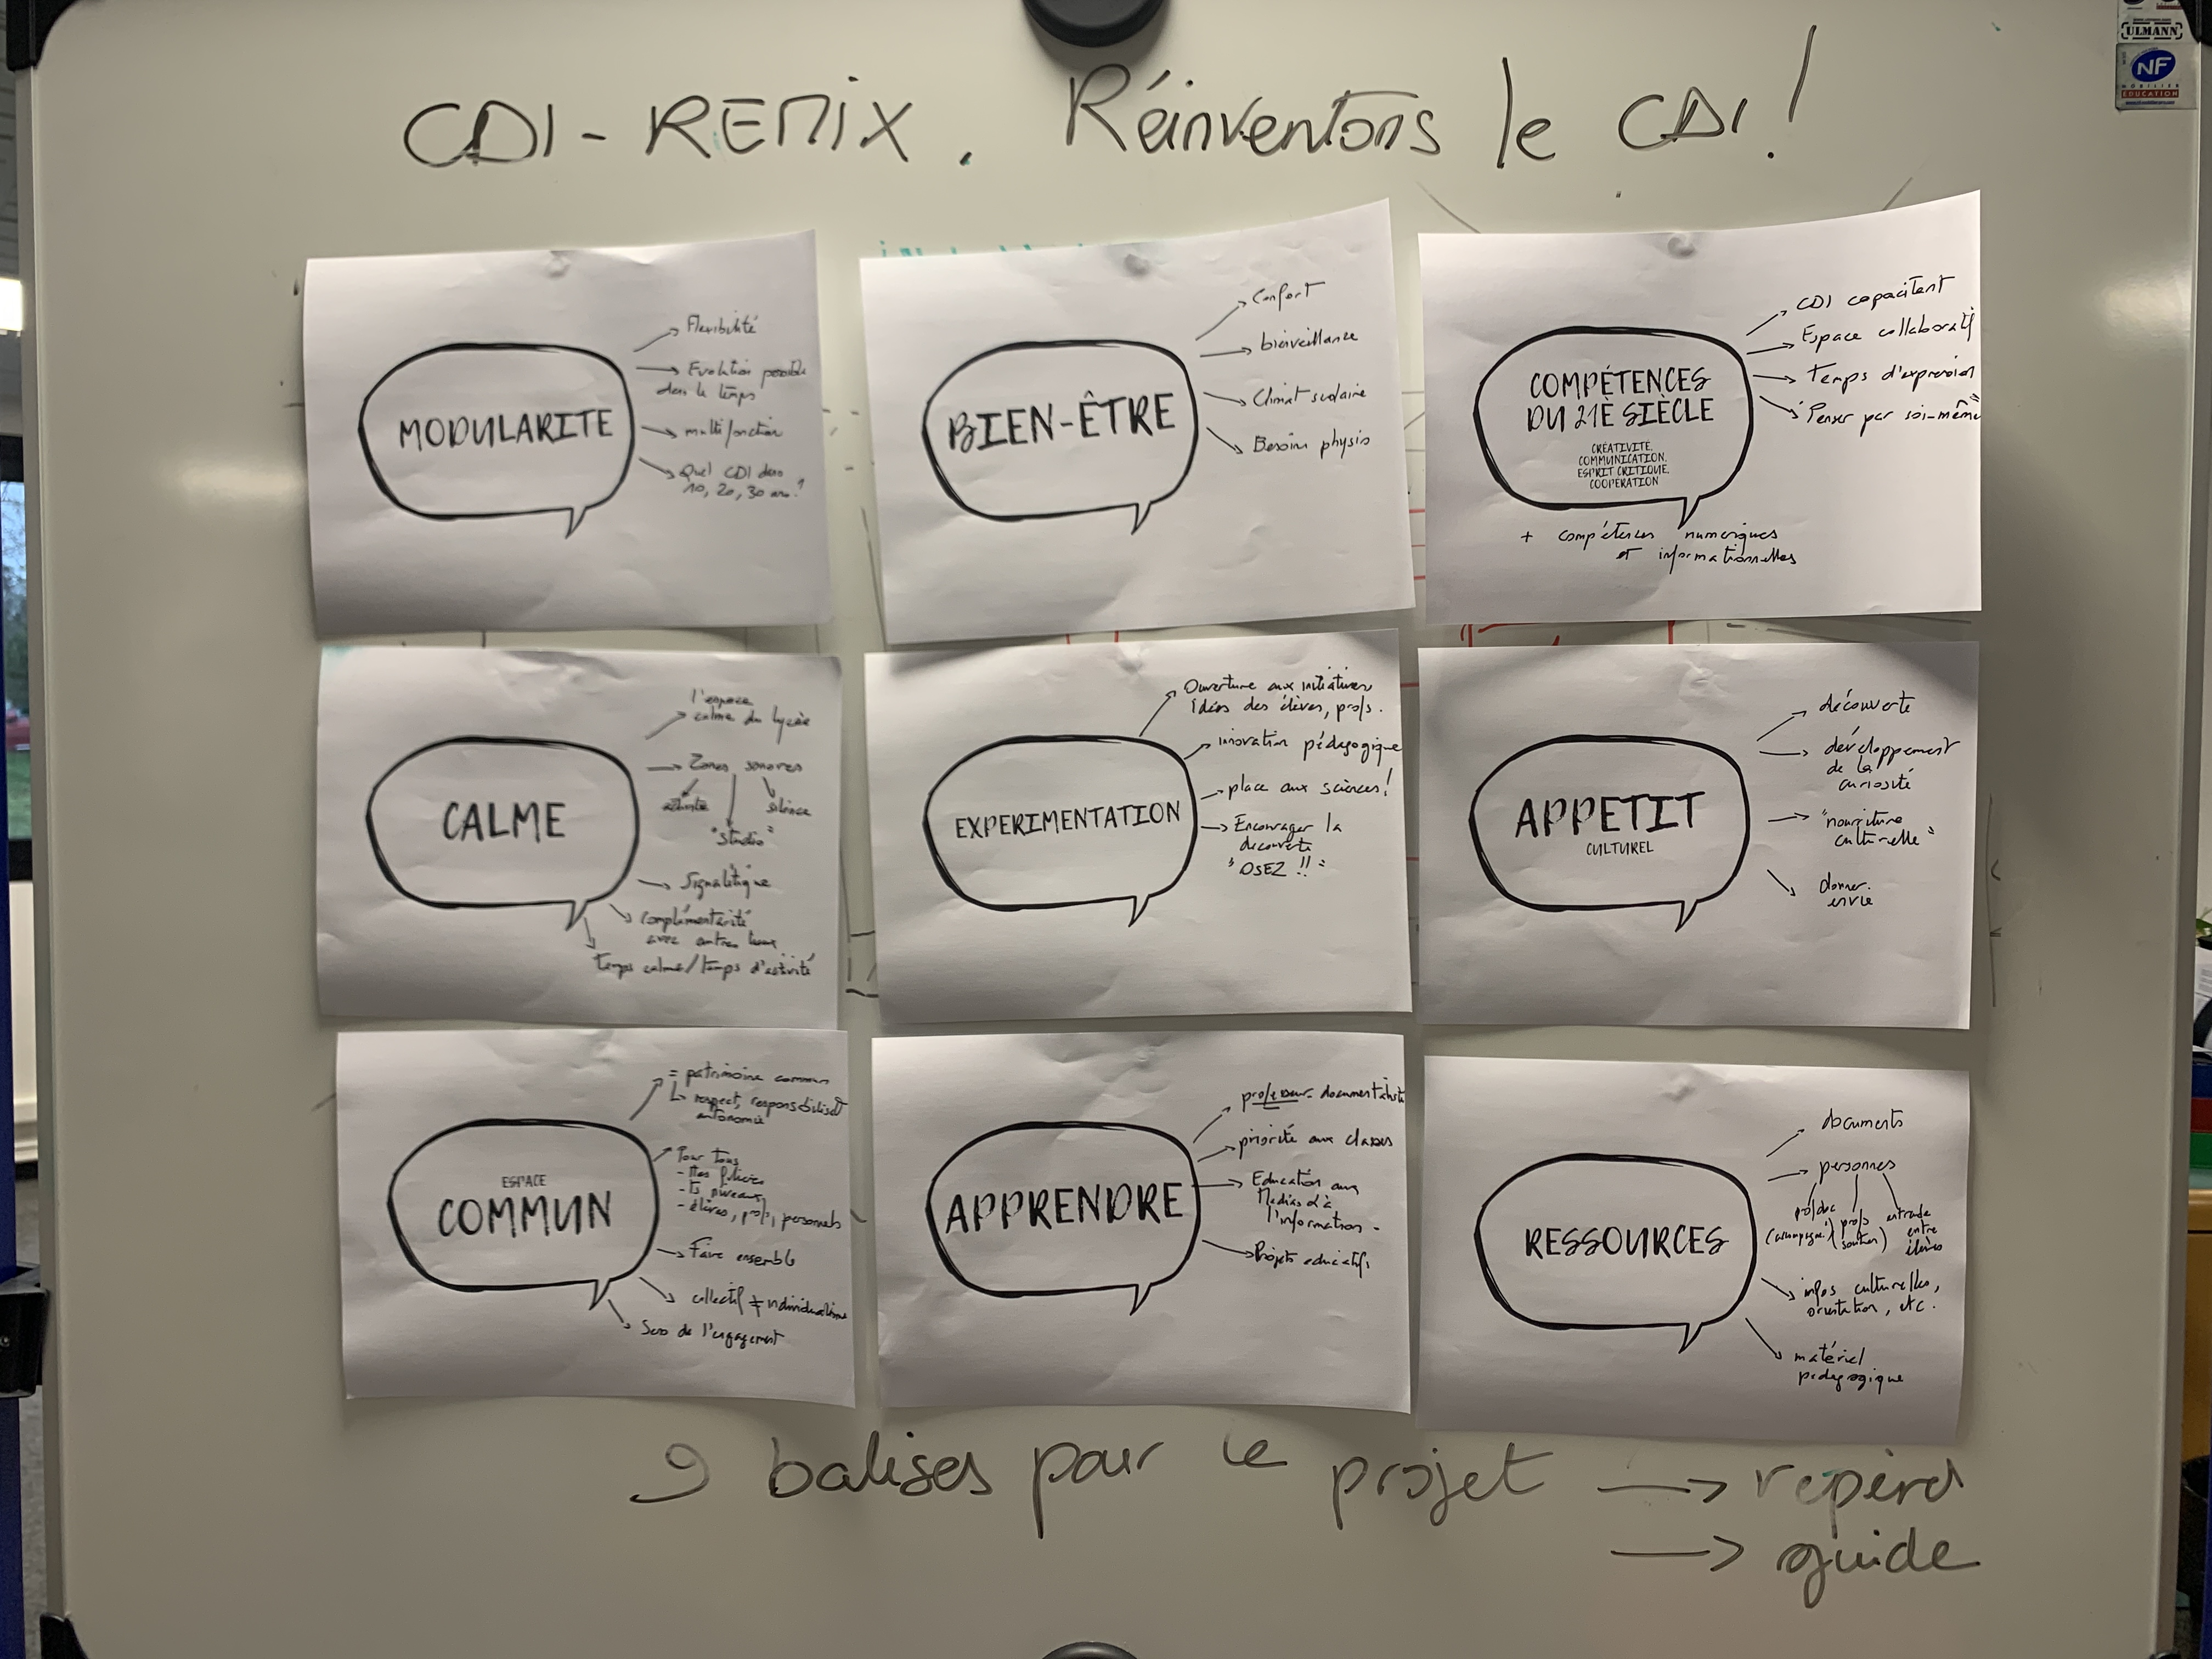 CDI-REMIX. Réinventons le CDI!
ULMANN
NF
MOBILIER
EDUCATION
MODULARITE
Flexibilité
Evolution possible
dans le temps
multifonction
Quel CDI dans
10, 20, 30 ans?
BIEN-ÊTRE
Confort
bienveillance
Climat scolaire
Besoins physio
COMPÉTENCES
DU 21È SIÈCLE
CRÉATIVITÉ,
COMMUNICATION,
ESPRIT CRITIQUE,
COOPERATION
CDI capacitant
Espace collaboratif
Temps d'expression
"Penser par soi-même"
+ compétences numériques
et informationnelles
CALME
l'espace
calme du lycée
Zones sonores
activité
silence
"studio"
Signalétique
complémentarité
avec autres lieux
Temps calme/temps d'activité
EXPERIMENTATION
Ouverture aux initiatives
Idées des élèves, profs.
innovation pédagogique
place aux sciences!
Encourager la
découverte
"OSEZ !!"
APPETIT
CULTUREL
découverte
développement
de la
curiosité
"nourriture
culturelle"
donner
envie
ESPACE
COMMUN
= patrimoine commun
respect, responsabilisat°
autonomie
Pour tous
- ttes filières
- ts niveaux
- élèves, profs, personnels
Faire ensemble
collectif ≠ individualisme
Sens de l'engagement
APPRENDRE
professeur-documentaliste
priorité aux classes
Education aux
Médias & à
l'information -
Projets educatifs
RESSOURCES
documents
personnes
prof doc
(accompagnt)
profs
(soutien)
entraide
entre
élèves
infos culturelles,
orientation, etc.
matériel
pédagogique
9 balises pour le projet → repères
→ guide